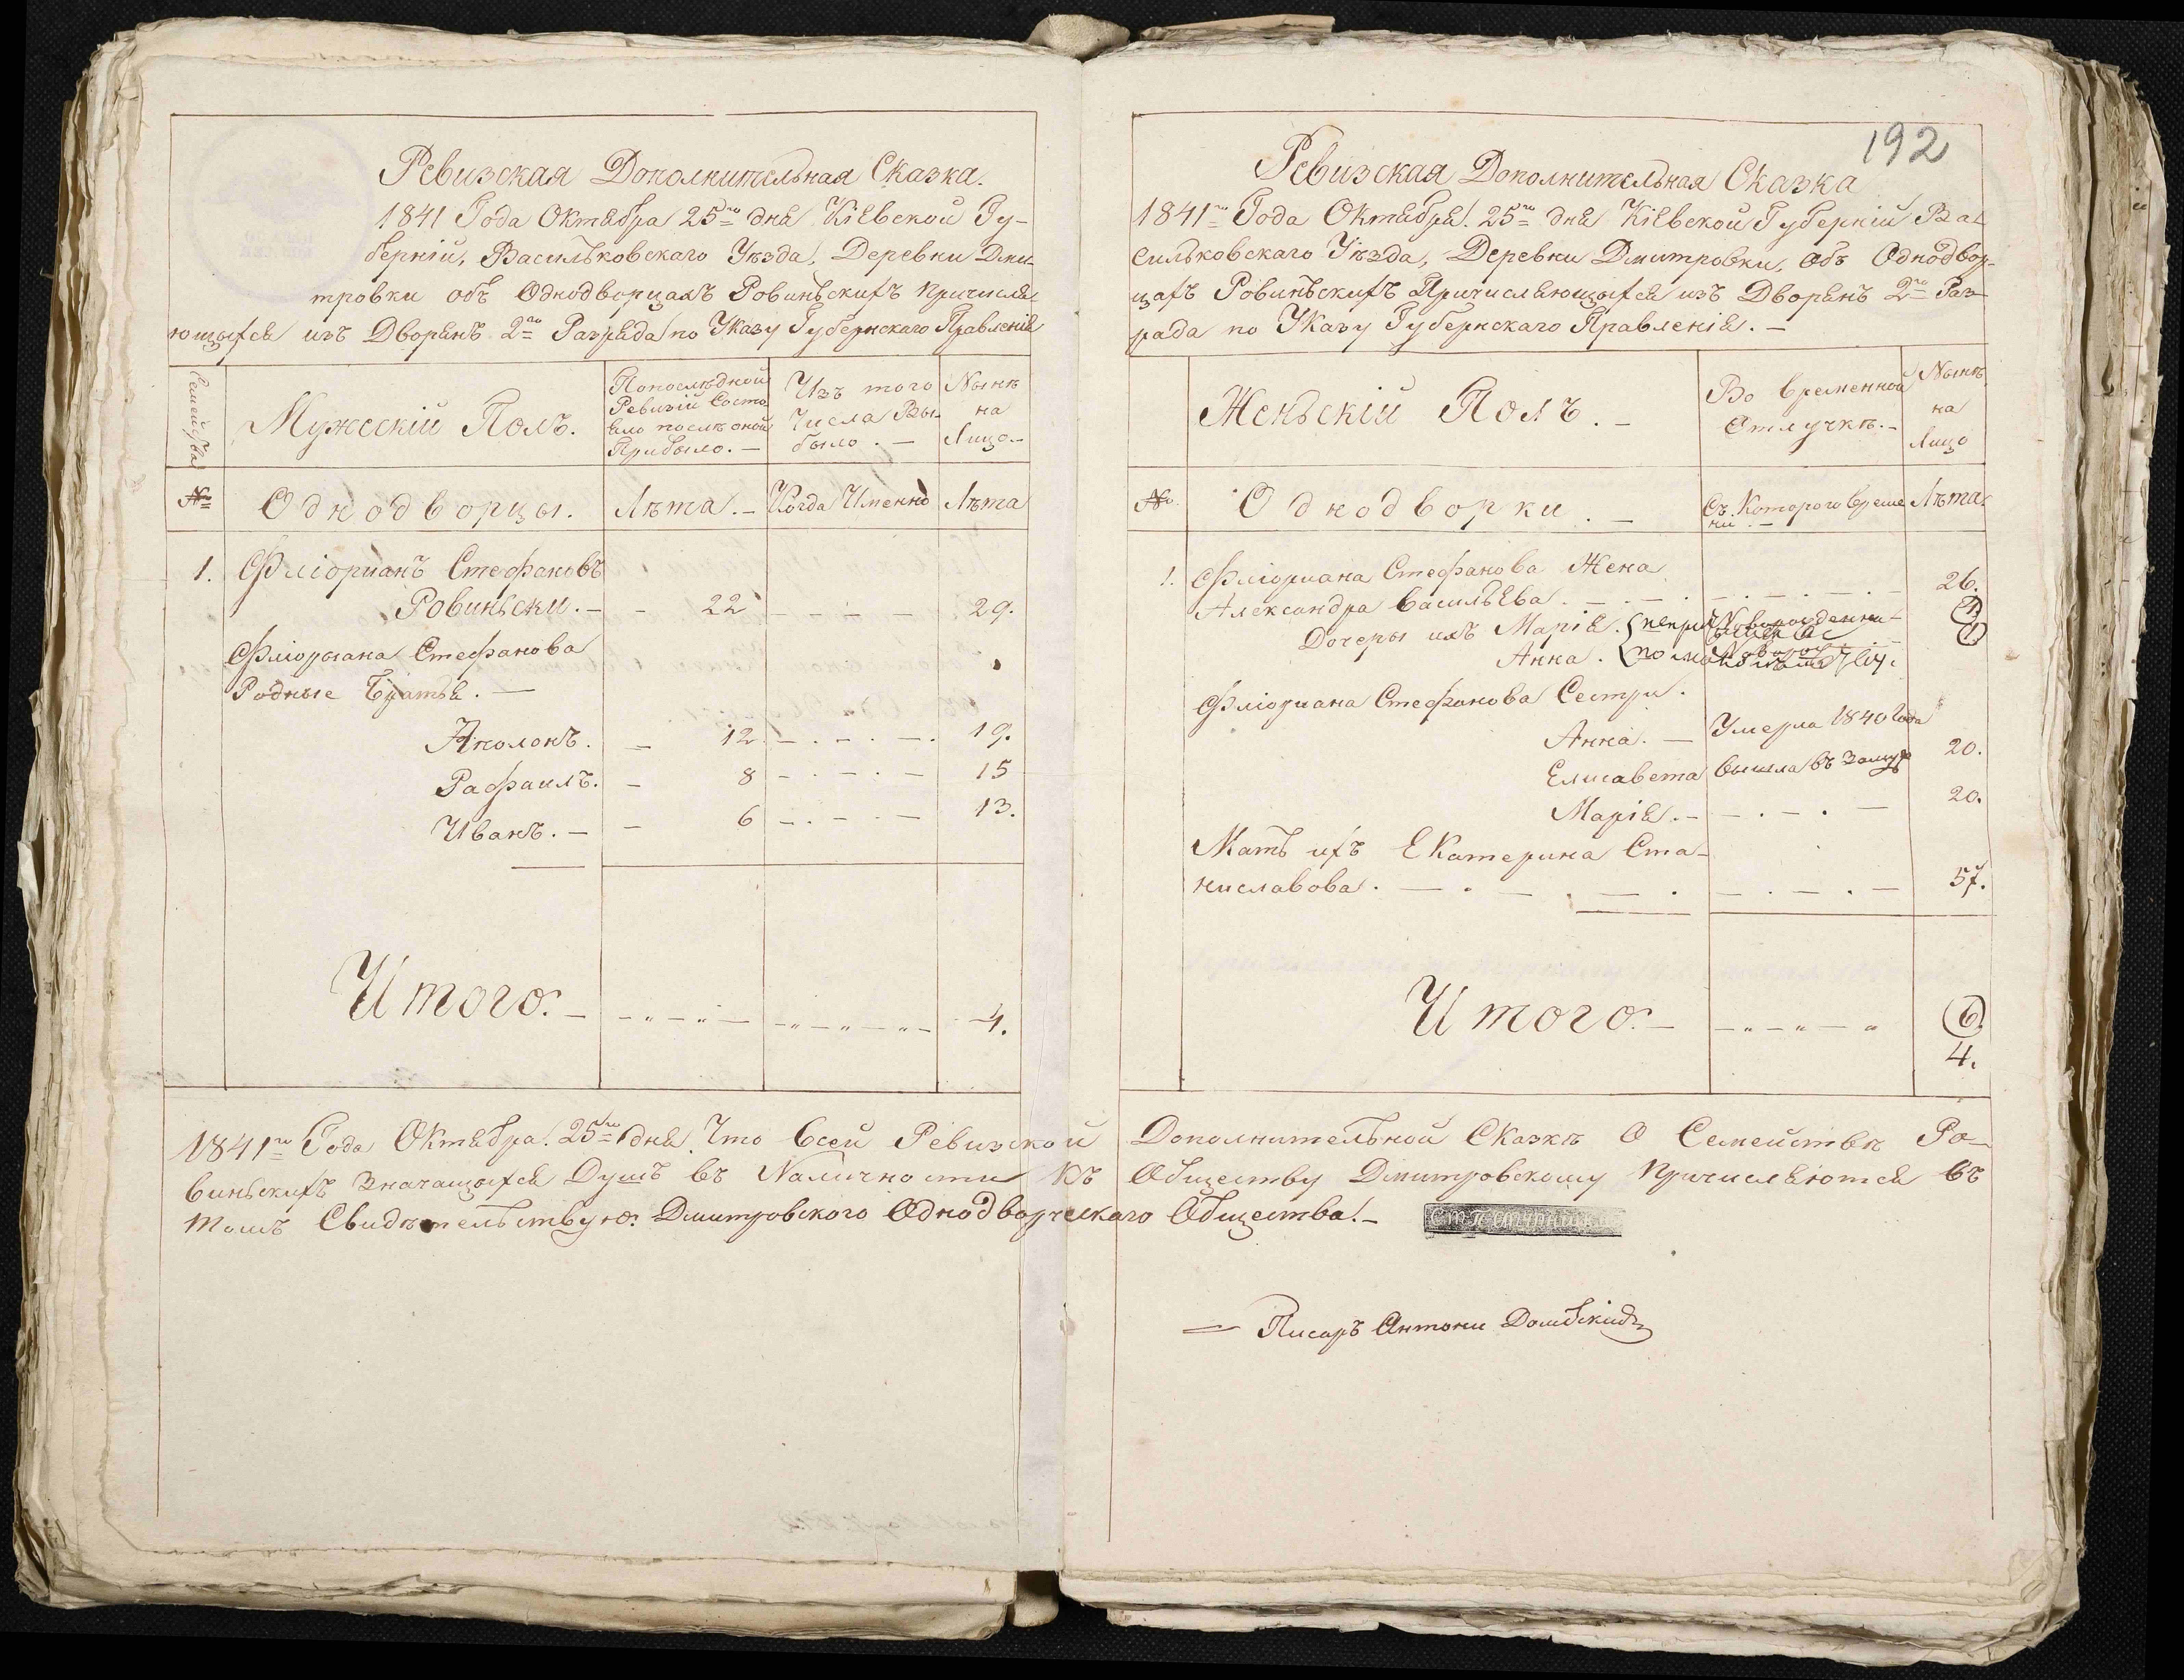 Ревизская Дополнительная Сказка.
1841 Года Октября 25го дня Кіевской Гу-
берній, Васильковскаго Уѣзда, Деревни Дми-
тровки объ Однодворцахъ Ровиньскихъ причисля-
ющыхся изъ Дворянъ 2го Разряда по Указу Губернскаго Правленія
Семейства
Мужескій Полъ.
Попослѣдной
Ревизій Состо
яло послѣ оной
Прибыло. —
Изъ того
Числа Вы-
было. —
Нынѣ
на
Лицо. —
№
Однодворцы.
Лѣта. —
Когда Именно
Лѣта
1. Фліорианъ Стефановъ
Ровиньски. — 22 29.
Фліориана Стефанова
Родные Братья. —
Аполонъ. — 12 19.
Рафаилъ. — 8 15
Иванъ. — 6 13.
Итого. — 4.
192
Ревизская Дополнительная Сказка
1841го Года Октября 25го дня Кіевской Губерній Ва-
сильковскаго Уѣзда, Деревни Дмитровки, объ Однодвор-
цахъ Ровиньскихъ Причисляющыхся изъ Дворянъ 2го Раз-
ряда по Указу Губернскаго Правленія. —
Женьскій Полъ. —
Во временной
Отлучкѣ. —
Нынѣ
на
Лицо
№
Однодворки. —
Съ Которого Време
ни. —
Лѣта
1. Фліориана Стефанова Жена
Александра Васильева. — 26.
Дочеры ихъ Марія. 1
Анна. 1
Фліориана Стефанова Сестри.
Анна. — Умерла 1840 Года
Елисавета вышла въ Замуж 20.
Марія. — 20.
Мать ихъ Екатерина Ста-
ниславова. — 57.
Итого. — 6.
4.
1841го Года Октября 25го дня. Что всей Ревизской Дополнительной Сказкѣ О Семействѣ Ро-
виньскихъ Значащыхся Душъ въ Наличности Къ Обществу Дмитровскому причисляются въ
томъ Свидѣтельствую. Дмитровского Однодворческаго Общества. —
Писаръ Антони Домбскій